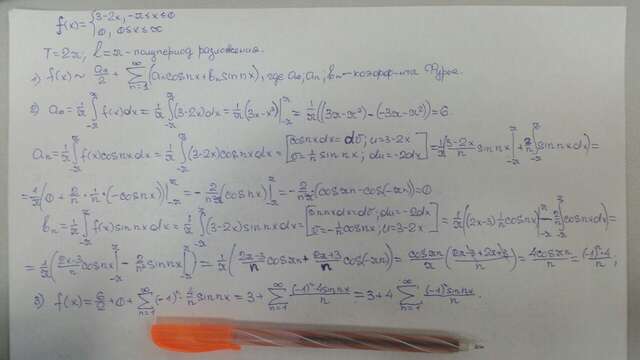 f(x) = { 3-2x, -π≤x≤0
0, 0≤x≤π
T=2π; l=π - полупериод разложения.
1) f(x) ~ a₀/2 + ∑_{n=1}^{∞} (aₙcosnx + bₙsinnx), где a₀; aₙ; bₙ - коэфф-ты Фурье.
2) a₀ = 1/π ∫_{-π}^{π} f(x)dx = 1/π ∫_{-π}^{π} (3-2x)dx = 1/π (3x-x²)|_{-π}^{π} = 1/π ((3π-π²)-(-3π-π²)) = 6.
aₙ = 1/π ∫_{-π}^{π} f(x)cosnxdx = 1/π ∫_{-π}^{π} (3-2x)cosnxdx = [cosnxdx=dv; u=3-2x v=1/n sinnx; du=-2dx] = 1/π (3-2x/n sinnx|_{-π}^{π} + 2/n ∫_{-π}^{π} sinnxdx) =
= 1/π (0 + 2/n · 1/n · (-cosnx))|_{-π}^{π} = - 2/n²π (cosnx)|_{-π}^{π} = - 2/n²π (cosπn - cos(-πn)) = 0
bₙ = 1/π ∫_{-π}^{π} f(x)sinnxdx = 1/π ∫_{-π}^{π} (3-2x)sinnxdx = [sinnxdx=dv; du=-2dx v=-1/n cosnx; u=3-2x] = 1/π ((2x-3) 1/n cosnx|_{-π}^{π} - 2/n ∫_{-π}^{π} cosnxdx) =
= 1/π (2x-3/n cosnx|_{-π}^{π} - 2/n² sinnx|_{-π}^{π}) = 1/π (2π-3/n cosπn + 2π+3/n cos(-πn)) = cosπn/π (2π-3+2π+3/n) = 4cosπn/n = (-1)ⁿ·4/n;
3) f(x) = 6/2 + 0 + ∑_{n=1}^{∞} (-1)ⁿ · 4/n sinnx = 3 + ∑_{n=1}^{∞} (-1)ⁿ·4sinnx/n = 3 + 4 ∑_{n=1}^{∞} (-1)ⁿsinnx/n.